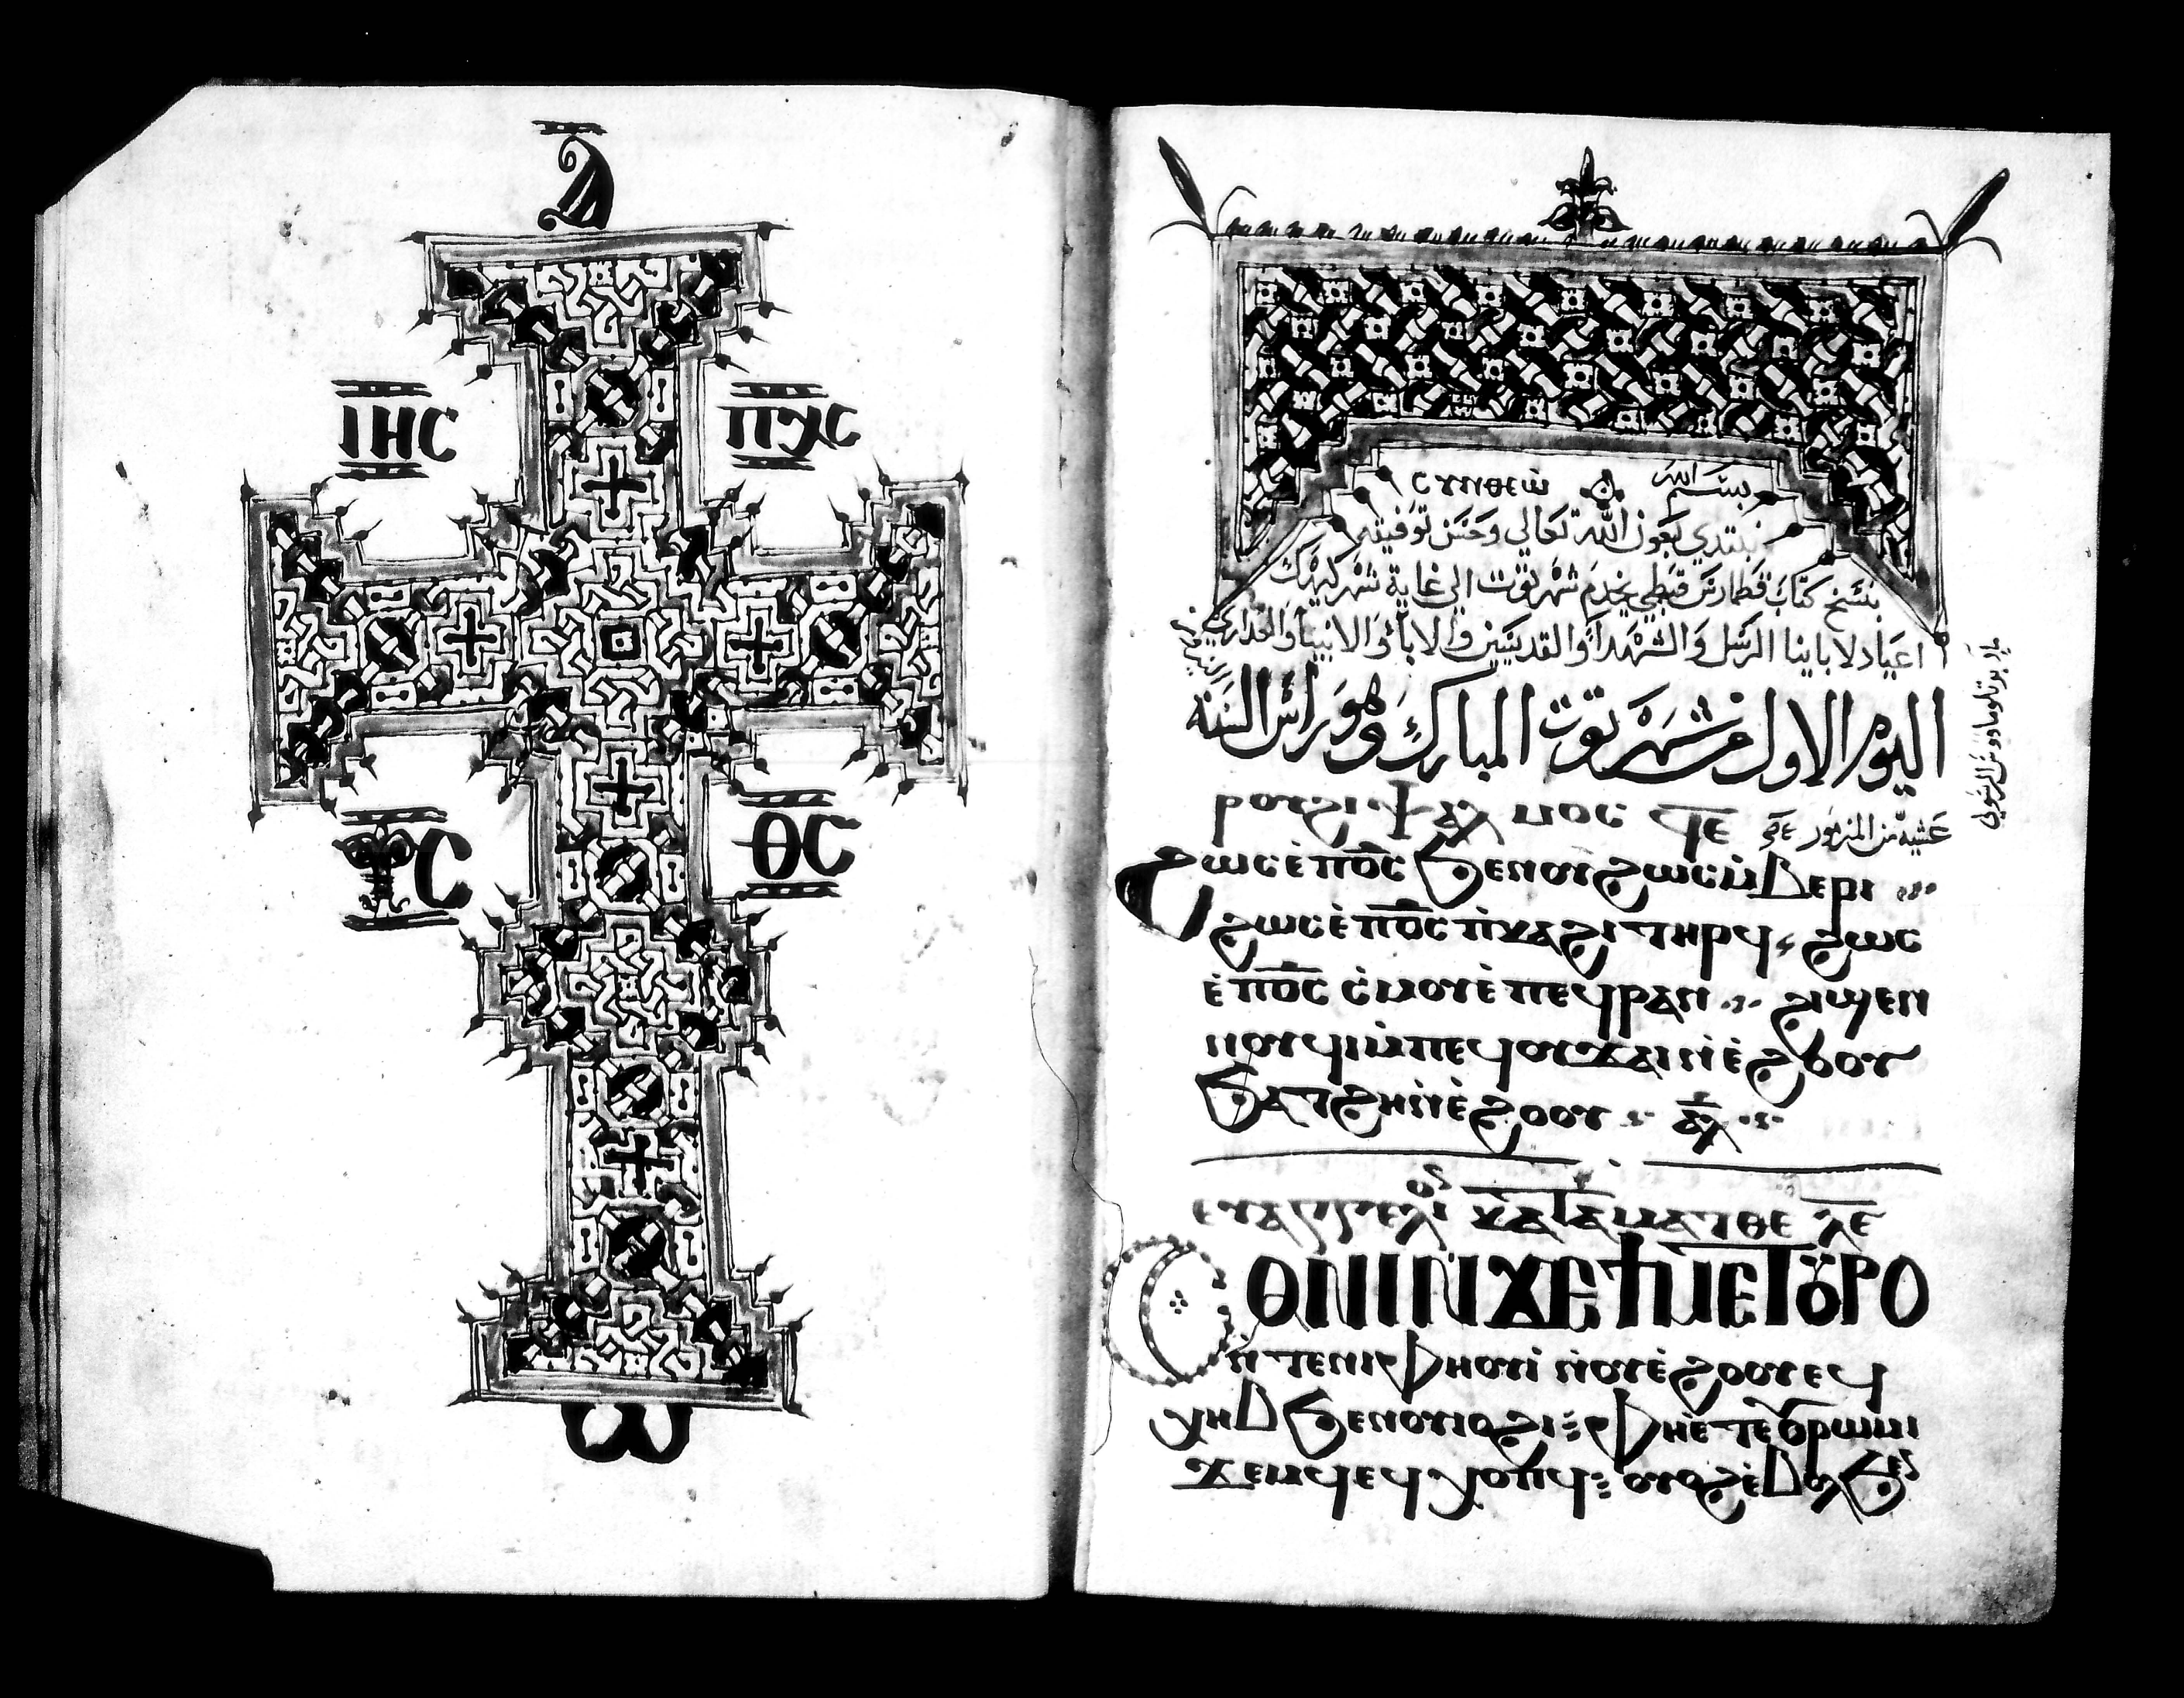 ⲁ̅
ⲓⲏⲥ ⲡⲭⲥ
ⲩⲥ ⲑⲥ
ⲱ
ⲥⲩⲛⲑⲉⲱ̀ بسم الله
نبتدي بعون الله تعالي وحسن توفيقه
بنسخ كتاب قطمارس قبطي يخدم شهر توت الي غاية شهر كيهك
اعياد لابابنا الرسل والشهدا والقديسين والابا والانبيا والعداري
اليوم الاول من شهر توت المبارك وهو راس السنه
ⲣⲟⲩϩⲓ ⲯⲁⲗⲙⲟⲥ ϥ̅ⲉ̅ عشية من المزمور
ϫⲱⲥ ⲉ̀ⲡⲟ̅ⲥ̅ ϧⲉⲛ ⲟⲩϩⲱⲥ ⲙ̀ⲃⲉⲣⲓ
ϩⲱⲥ ⲉ̀ⲡⲟ̅ⲥ̅ ⲡ̀ⲕⲁϩⲓ ⲧⲏⲣϥ ϩⲱⲥ
ⲉ̀ⲡⲟ̅ⲥ̅ ⲥ̀ⲙⲟⲩ ⲉ̀ⲡⲉϥⲣⲁⲛ ϩⲓϣⲉⲛ
ⲛⲟⲩϥⲓ ⲙ̀ⲡⲉϥⲟⲩϫⲁⲓ ⲛ̀ⲉ̀ϩⲟⲟⲩ
ϧⲁⲧϩⲏ ⲛ̀ⲉ̀ϩⲟⲟⲩ ⲁⲗ
ⲉⲩⲁⲅⲅⲉⲗⲓⲟⲥ ⲕⲁⲧⲁ ⲙⲁⲧⲑⲉ
ⲥⲟⲛⲓ ⲛϫⲉ ϯⲙⲉⲧⲟⲩⲣⲟ
ⲛ̀ⲧⲉ ⲛⲓⲫⲏⲟⲩⲓ̀ ⲛ̀ⲟⲩⲉ̀ϩⲟ ⲉϥ
ⲭⲏⲡ ϧⲉⲛ ⲟⲩⲓⲟϩⲓ ⲫⲏⲉ̀ⲧⲉ ⲟⲩⲣⲱⲙⲓ
ϫⲉⲙϥ ⲉϥⲭⲟⲡϥ ⲟⲩⲟϩ ⲉ̀ⲃⲟⲗ ϧⲉⲛ